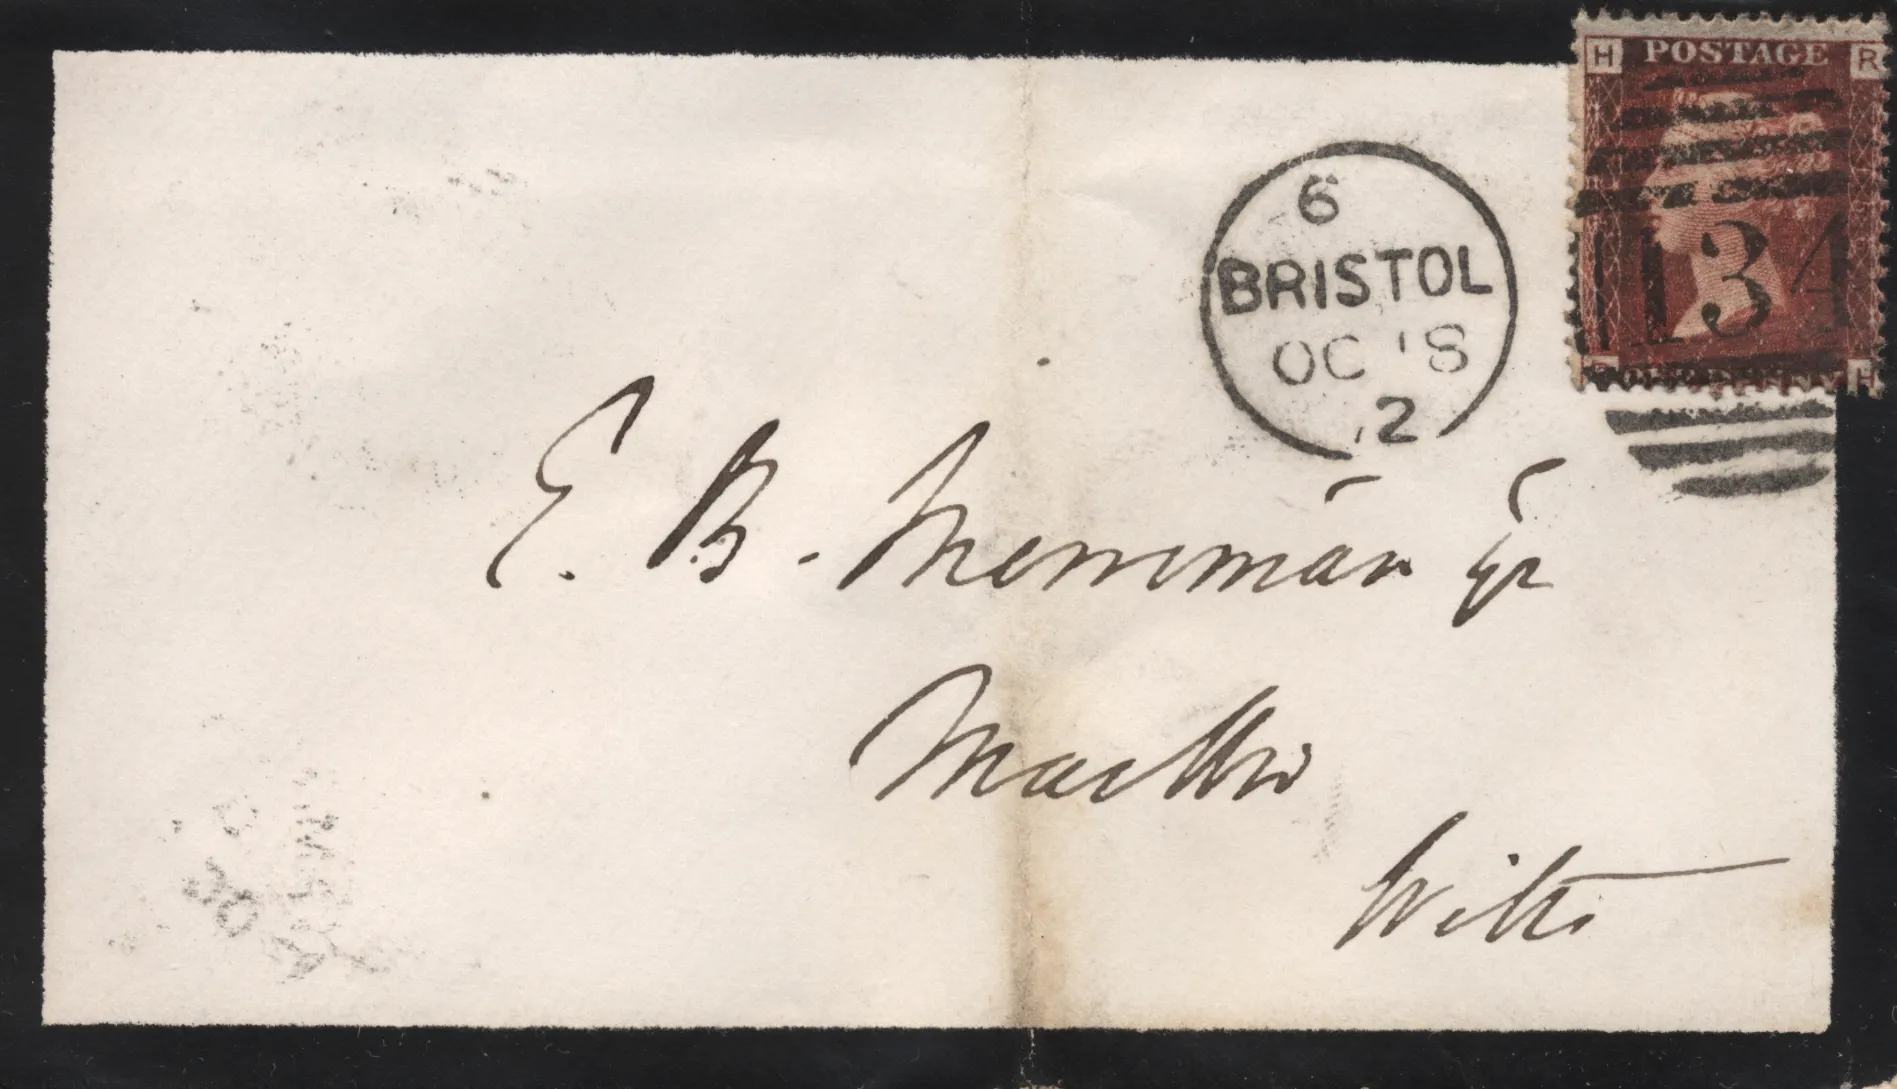 H POSTAGE R
134
R ONE PENNY H
6
BRISTOL
OC 18
72
E. B. Merriman Esqr
Marlbro
Wilts